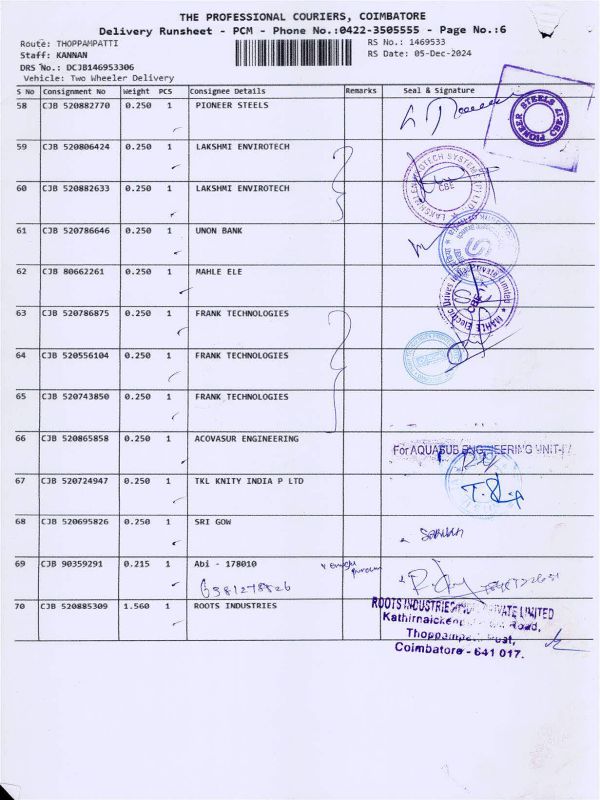 THE PROFESSIONAL COURIERS, COIMBATORE
Delivery Runsheet - PCM - Phone No.:0422-3505555 - Page No.:6
Route: THOPPAMPATTI RS No.: 1469533
Staff: KANNAN RS Date: 05-Dec-2024
DRS No.: DCJB146953306
Vehicle: Two Wheeler Delivery
S No Consignment No Weight PCS Consignee Details Remarks Seal & Signature
58 CJB 520882770 0.250 1 PIONEER STEELS
PIONEER STEELS CBE-17
59 CJB 520806424 0.250 1 LAKSHMI ENVIROTECH
LAKSHMI ENVIROTECH SYSTEMS (P) LTD. CBE
60 CJB 520882633 0.250 1 LAKSHMI ENVIROTECH
61 CJB 520786646 0.250 1 UNON BANK
62 CJB 80662261 0.250 1 MAHLE ELE
MAHLE Electric Drives India Private Limited CBE
63 CJB 520786875 0.250 1 FRANK TECHNOLOGIES
64 CJB 520556104 0.250 1 FRANK TECHNOLOGIES
65 CJB 520743850 0.250 1 FRANK TECHNOLOGIES
66 CJB 520865858 0.250 1 ACOVASUR ENGINEERING
For AQUASUB ENGINEERING UNIT-IV
67 CJB 520724947 0.250 1 TKL KNITY INDIA P LTD
68 CJB 520695826 0.250 1 SRI GOW
69 CJB 90359291 0.215 1 Abi - 178010
6381278526
70 CJB 520885309 1.560 1 ROOTS INDUSTRIES
ROOTS INDUSTRIES INDIA PRIVATE LIMITED
Road,
Thoppampatti Post,
Coimbatore - 641 017.